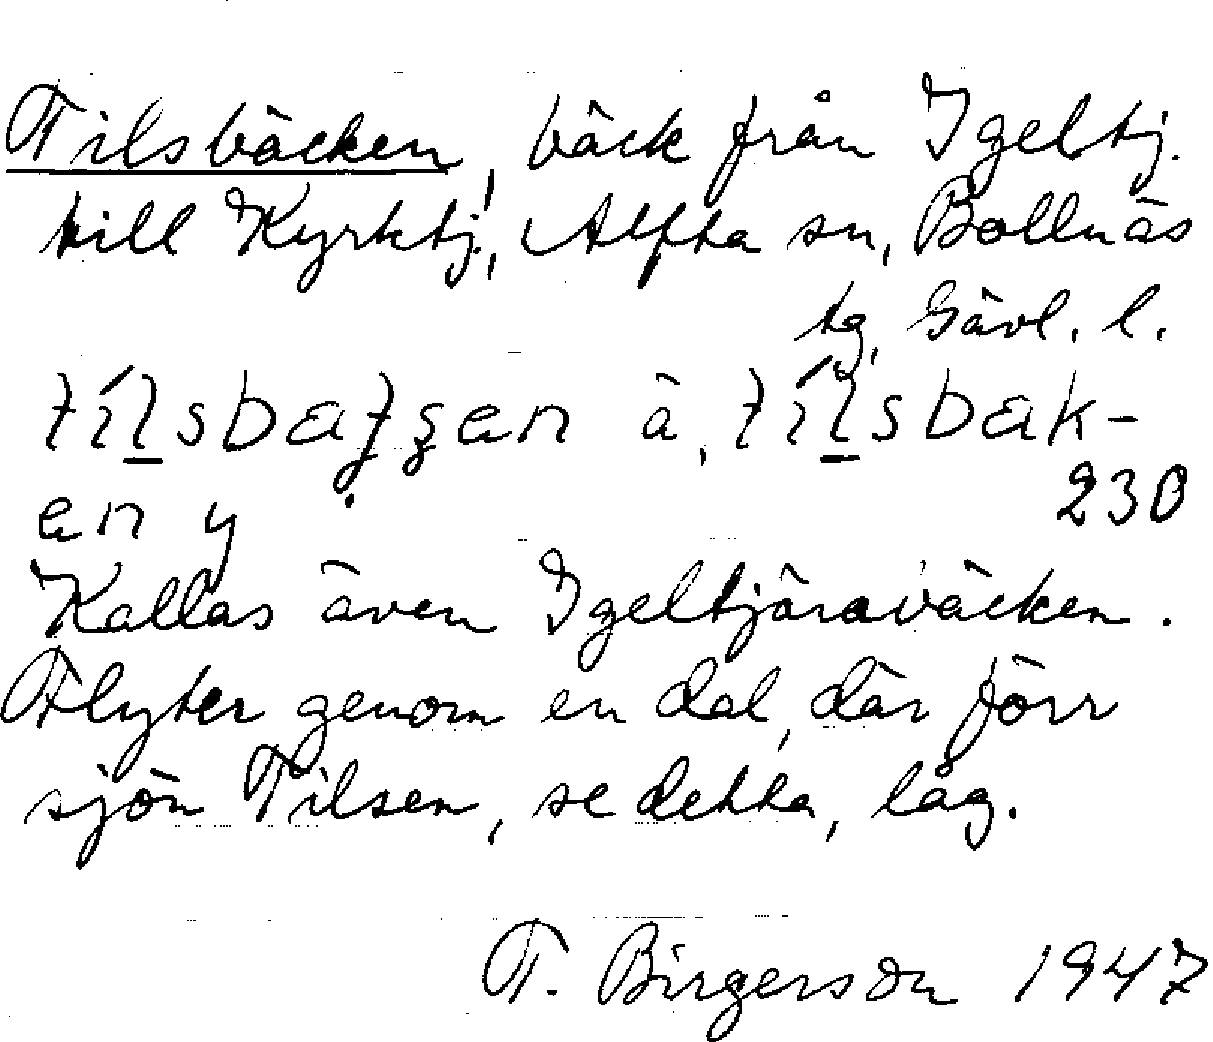 Tilsbäcken, bäck från Igeltj.
till Kyrktj., Alfta sn, Bollnäs
tg, Gävl. l.
tílsbatşen ä, tílsbak-
en y 230
Kallas även Igeltjäraväcken.
Flyter genom en dal, där förr
sjön Tilsen, se detta, låg.
T. Birgerson 1947